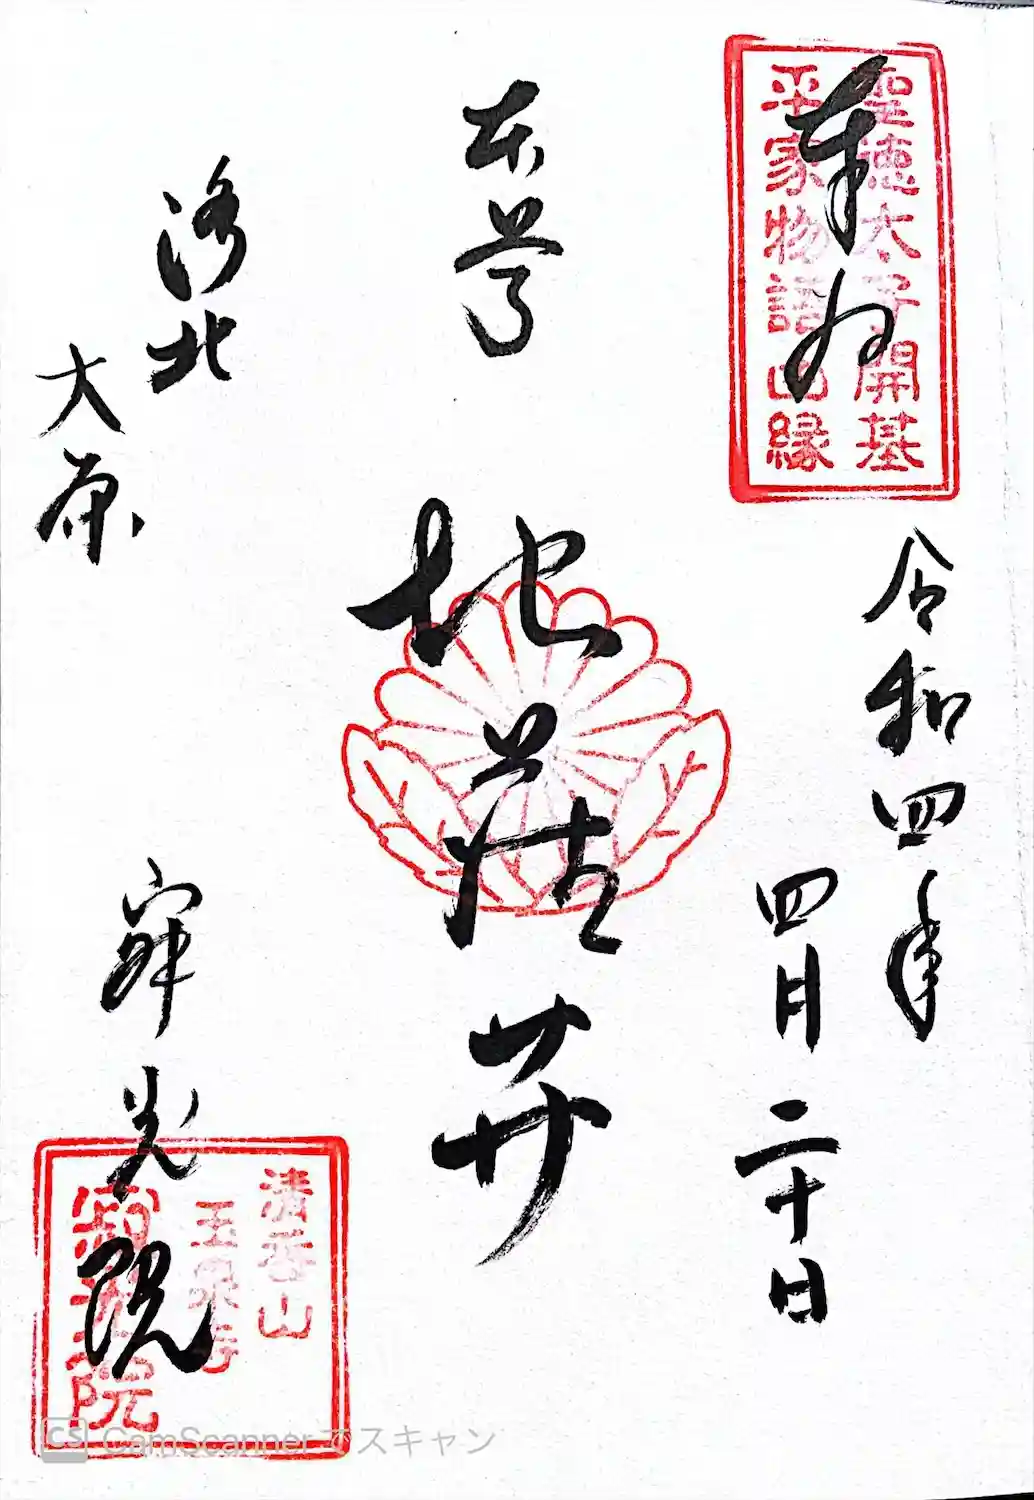 聖徳太子開基
平家物語由縁
奉拝
令和四年
四月二十日
本尊
地蔵𦬇
洛北
大原
寂光院
清香山
玉泉寺
寂光院
CS CamScanner でスキャン